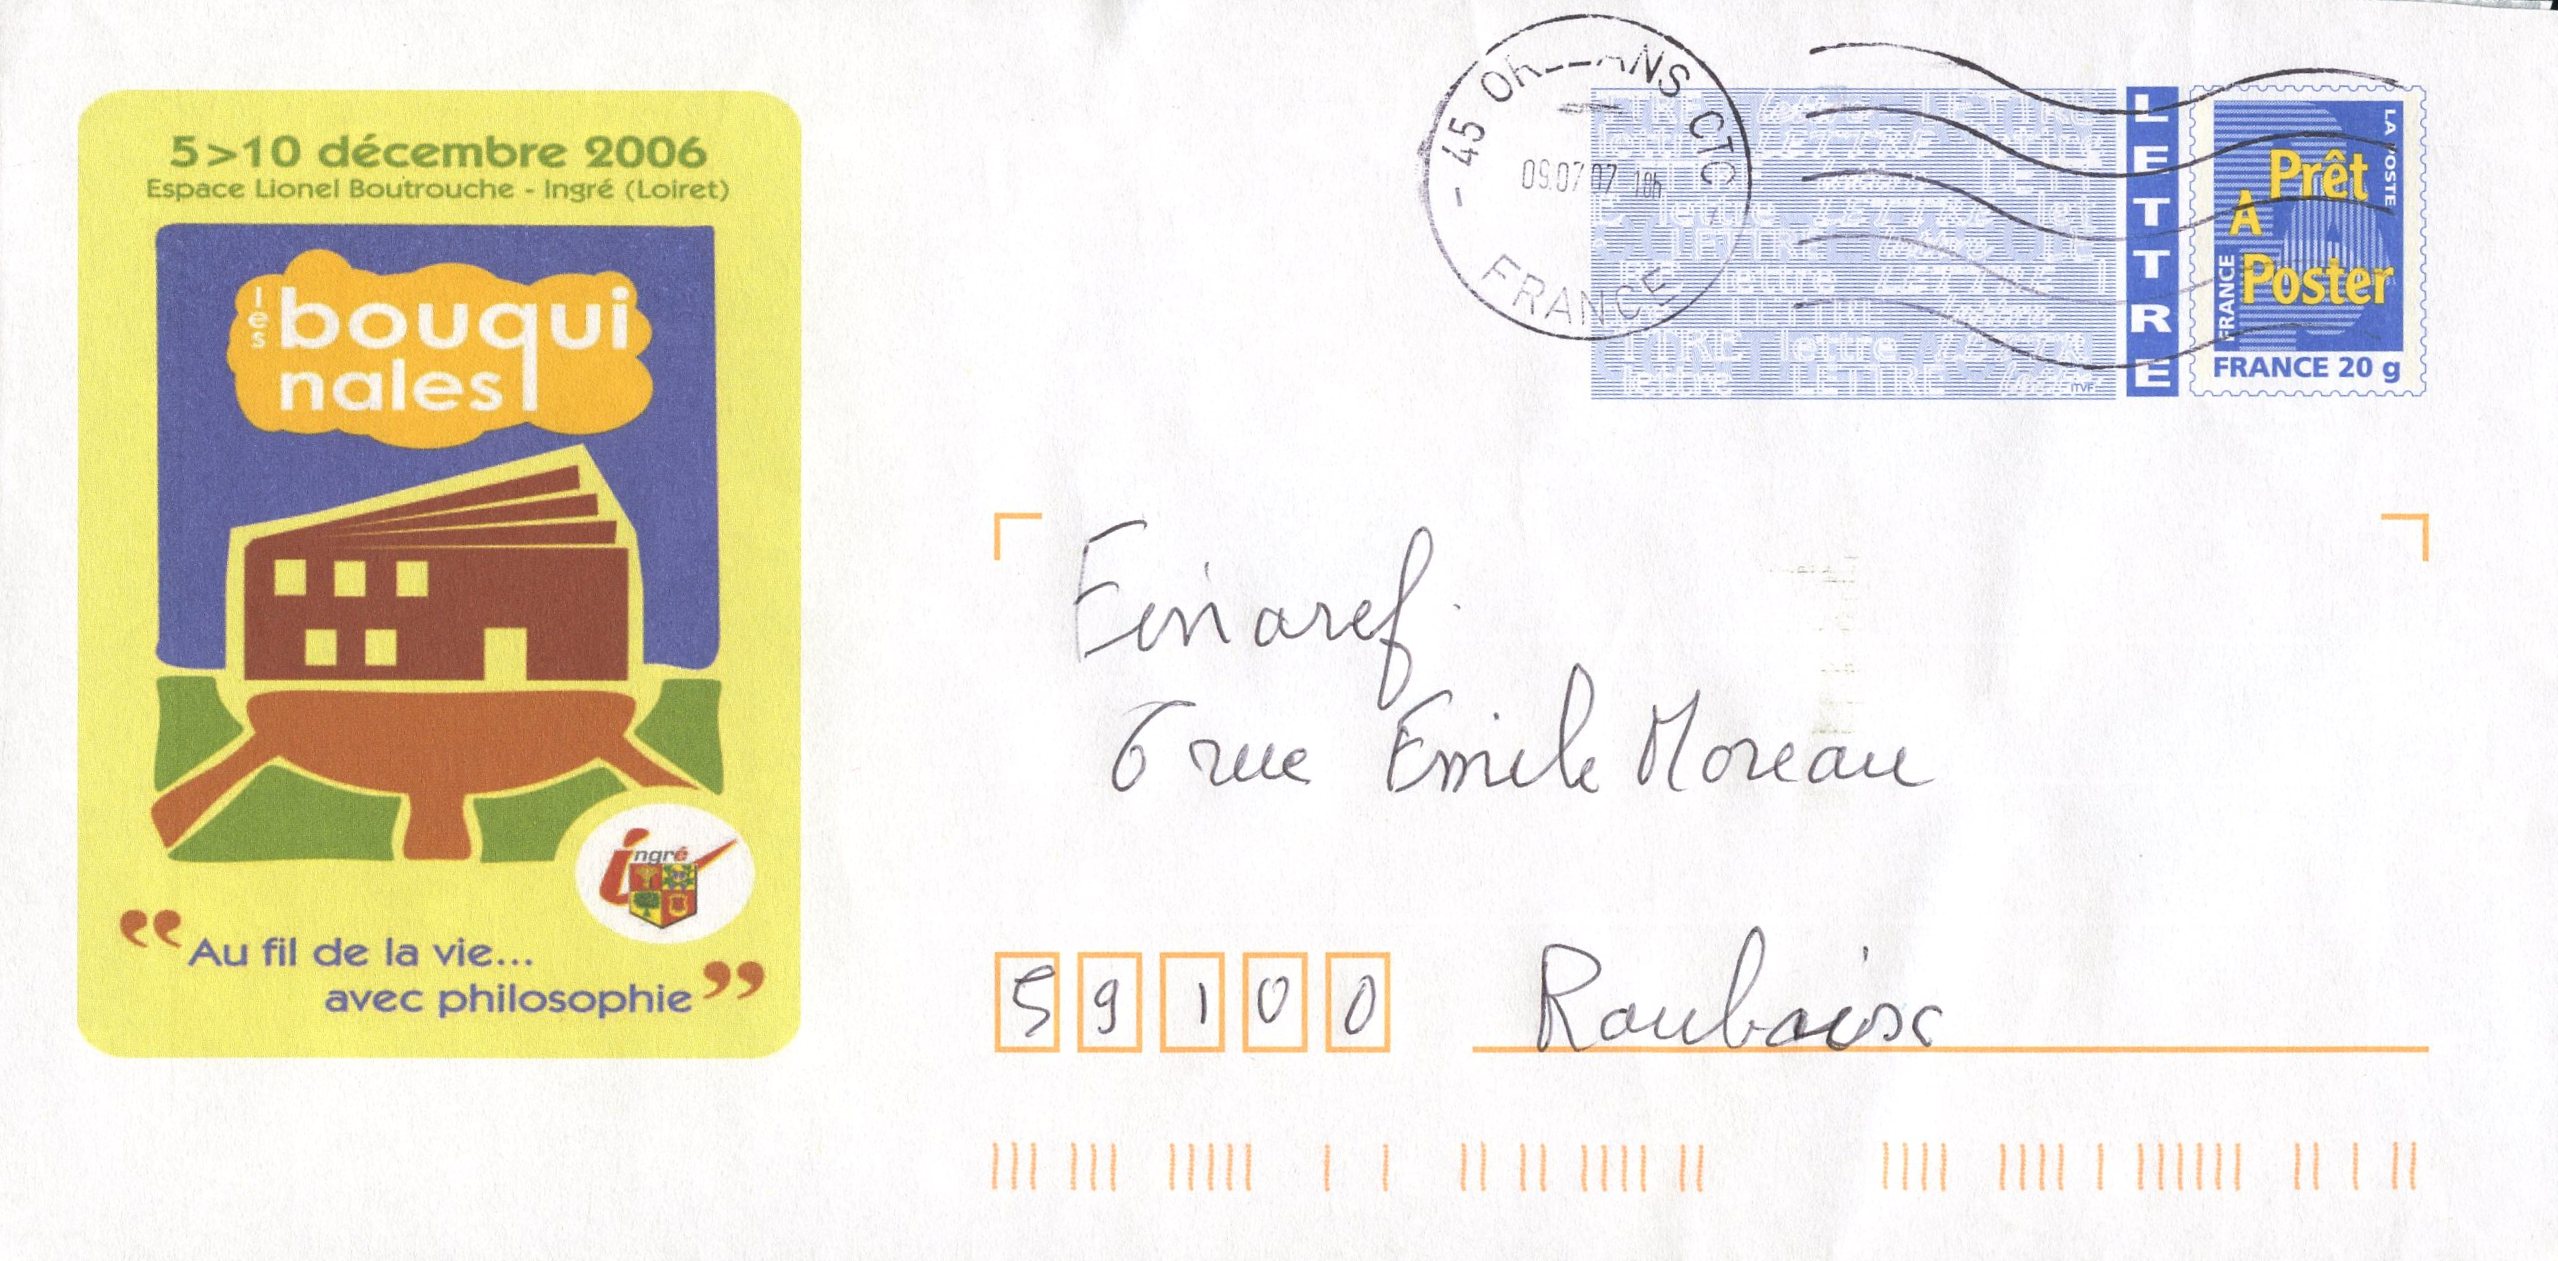 5>10 décembre 2006
Espace Lionel Boutrouche - Ingré (Loiret)
les
bouqui
nales
ingré
“Au fil de la vie...
avec philosophie”
- 45 ORLEANS CTC -
09.07.07 18h
FRANCE
LETTRE
LA POSTE
Prêt
A
Poster
FRANCE
FRANCE 20 g
ITVF
Finaref
6 rue Emile Moreau
59100 Roubaix